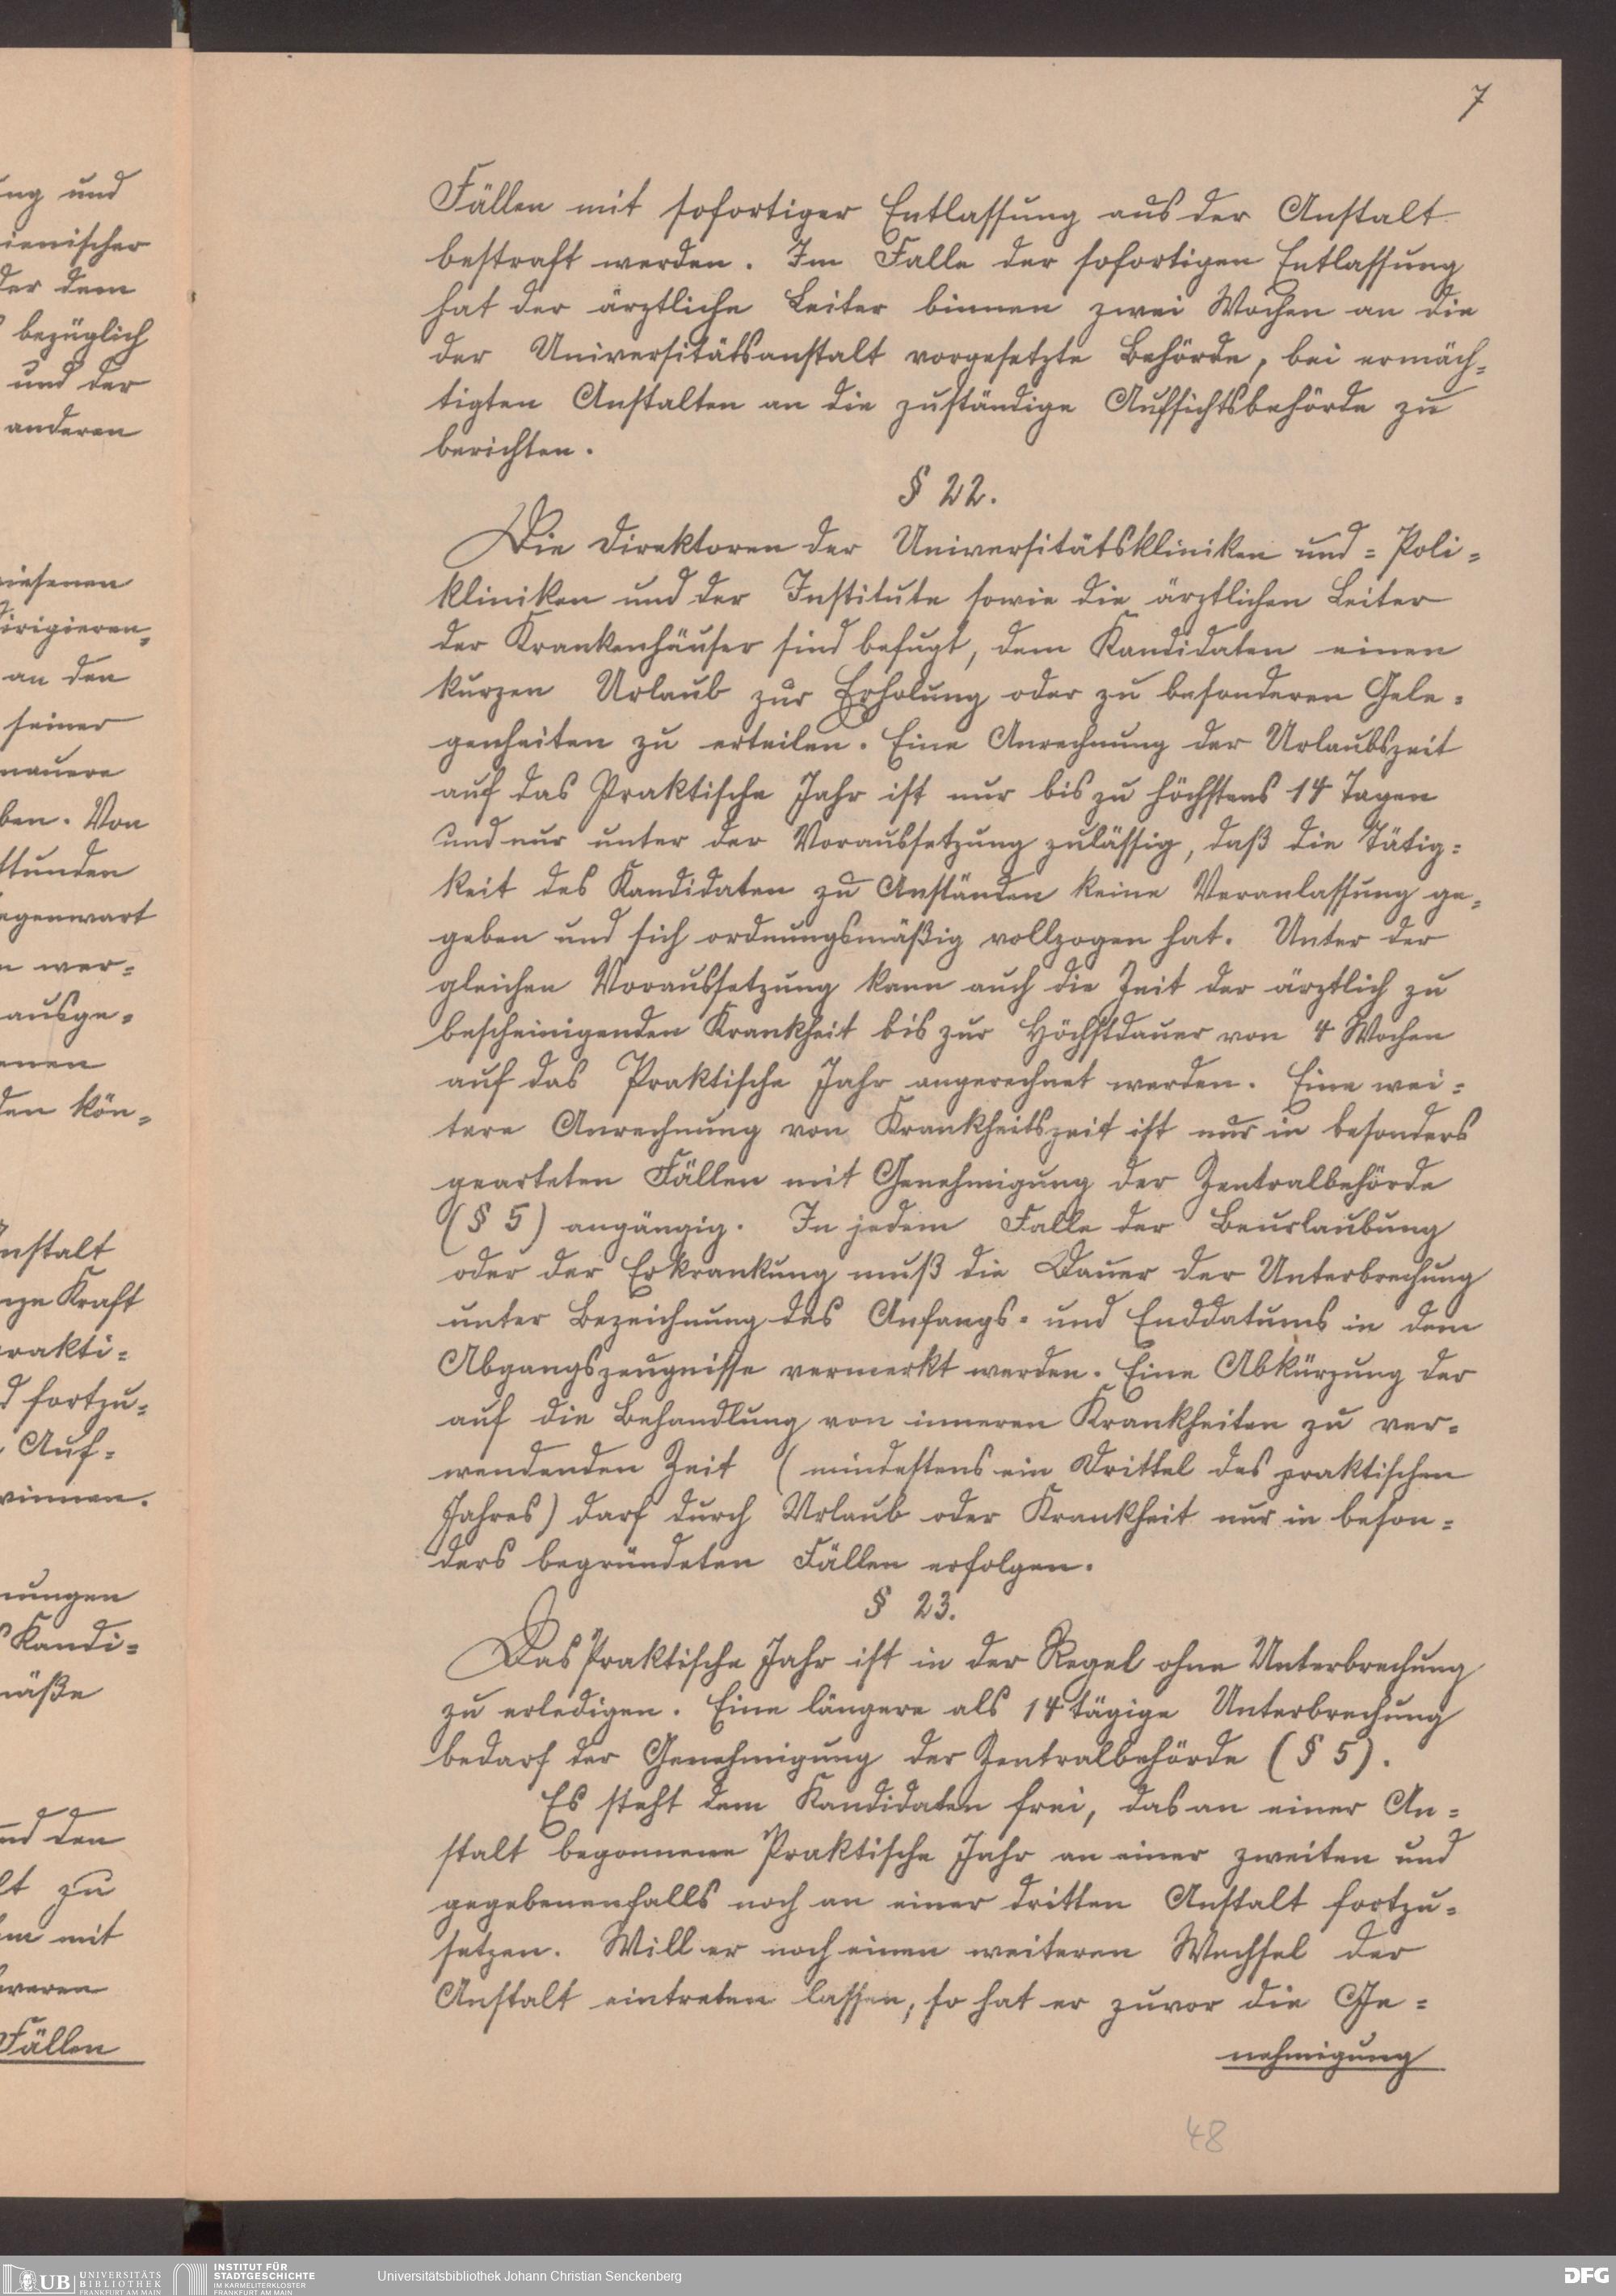 7
Fällen mit sofortiger Entlassung aus der Anstalt
bestraft werden. Im Falle der sofortigen Entlassung
hat der ärztliche Leiter binnen zwei Wochen an die
der Universitätsanstalt vorgesetzte Behörde, bei ermäch-
tigten Anstalten an die zuständige Aufsichtsbehörde zu
berichten.
§ 22.
Die Direktoren der Universitätskliniken und = Poli-
kliniken und der Institute sowie die ärztlichen Leiter
der Krankenhäuser sind befugt, dem Kandidaten einen
kurzen Urlaub zur Erholung oder zu besonderen Gele-
genheiten zu erteilen. Eine Anrechnung der Urlaubszeit
auf das Praktische Jahr ist nur bis zu höchstens 14 Tagen
und nur unter der Voraussetzung zulässig, daß die Tätig-
keit des Kandidaten zu Anständen keine Veranlassung ge-
geben und sich ordnungsmäßig vollzogen hat. Unter der
gleichen Voraussetzung kann auch die Zeit der ärztlich zu
bescheinigenden Krankheit bis zur Höchstdauer von 4 Wochen
auf das Praktische Jahr angerechnet werden. Eine wei-
tere Anrechnung von Krankheitszeit ist nur in besonders
gearteten Fällen mit Genehmigung der Zentralbehörde
(§ 5) angängig. In jedem Falle der Beurlaubung
oder der Erkrankung muß die Dauer der Unterbrechung
unter Bezeichnung des Anfangs- und Enddatums in dem
Abgangszeugnisse vermerkt werden. Eine Abkürzung der
auf die Behandlung von inneren Krankheiten zu ver-
wendenden Zeit (mindestens ein Drittel des praktischen
Jahres) darf durch Urlaub oder Krankheit nur in beson-
ders begründeten Fällen erfolgen.
§ 23.
Das Praktische Jahr ist in der Regel ohne Unterbrechung
zu erledigen. Eine längere als 14 tägige Unterbrechung
bedarf der Genehmigung der Zentralbehörde (§ 5).
Es steht dem Kandidaten frei, das an einer An-
stalt begonnene Praktische Jahr an einer zweiten und
gegebenenfalls noch an einer dritten Anstalt fortzu-
setzen. Will er noch einen weiteren Wechsel der
Anstalt eintreten lassen, so hat er zuvor die Ge-
nehmigung
48
ng und
ienischer
der dem
bezüglich
und der
anderen
iesenen
dirigieren-
an den
seiner
nauere
ben. Von
Stunden
egenwart
n wer-
ausge-
enen
den kön-
nstalt
nze Kraft
rakti-
d fortzu-
Auf-
winnen.
nungen
Kandi-
mäße
nd den
lt zu
m mit
weren
Fällen
UB UNIVERSITÄTS
BIBLIOTHEK
FRANKFURT AM MAIN
INSTITUT FÜR
STADTGESCHICHTE
IM KARMELITERKLOSTER
FRANKFURT AM MAIN
Universitätsbibliothek Johann Christian Senckenberg
DFG